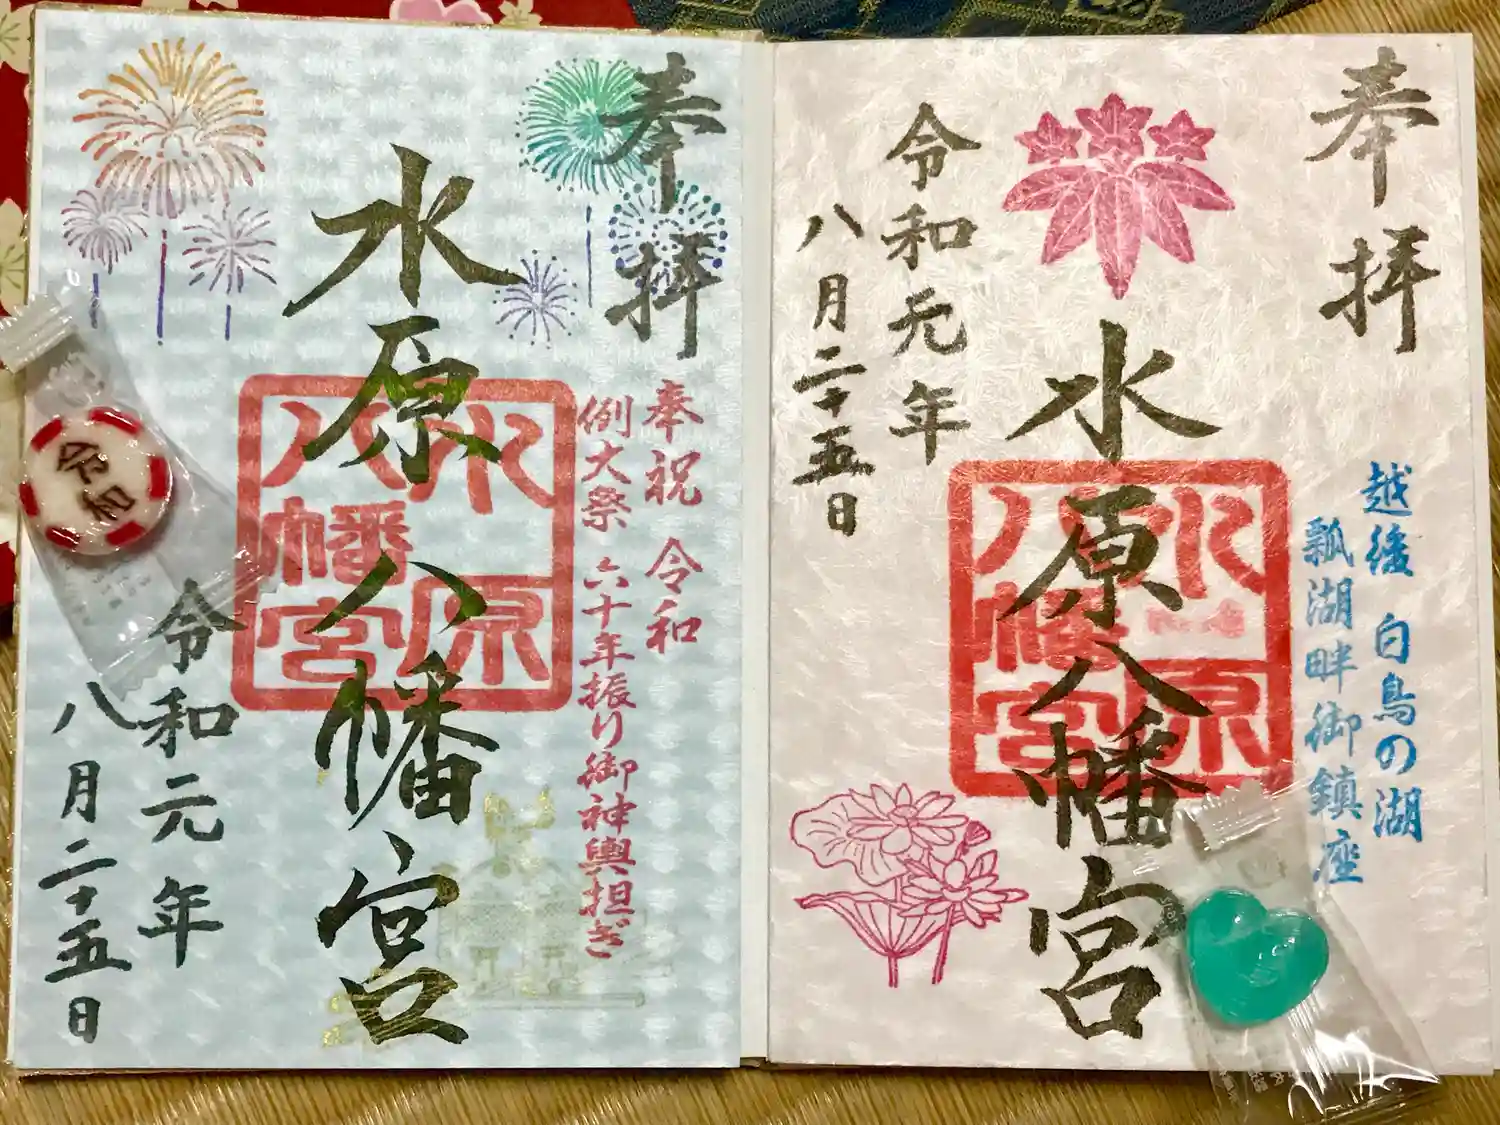 奉拝
越後 白鳥の湖
瓢湖畔御鎮座
水原八幡宮
水原
八幡宮
令和元年
八月二十五日
奉拝
奉祝 令和
例大祭 六十年振り御神輿担ぎ
水原八幡宮
水原
八幡宮
令和元年
八月二十五日